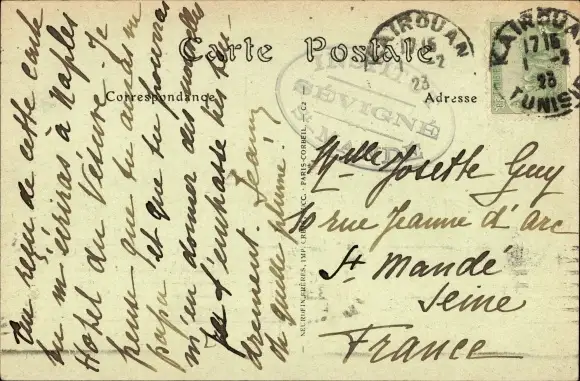 Carte Postale
Correspondance
Adresse
KAIROUAN
17 15
1 -2
23
TUNISIE
KAIROUAN
17 15
-2
23
INST
SÉVIGNÉ
MANDÉ
Au reçu de cette carte
tu m'écriras à Naples
Hotel du Vésuve. Je
pense que tu auras vu
papa et que tu pourras
m'en donner des nouvelles
Je t'embrasse très ten
drement. Jeanny
Oh quelle plume!
NEURDEIN FRÈRES, IMP. CRÉTÉ, SUCC. - PARIS-CORBEIL
Melle Josette Guy
10 rue Jeanne d'Arc
St. Mandé
Seine
France